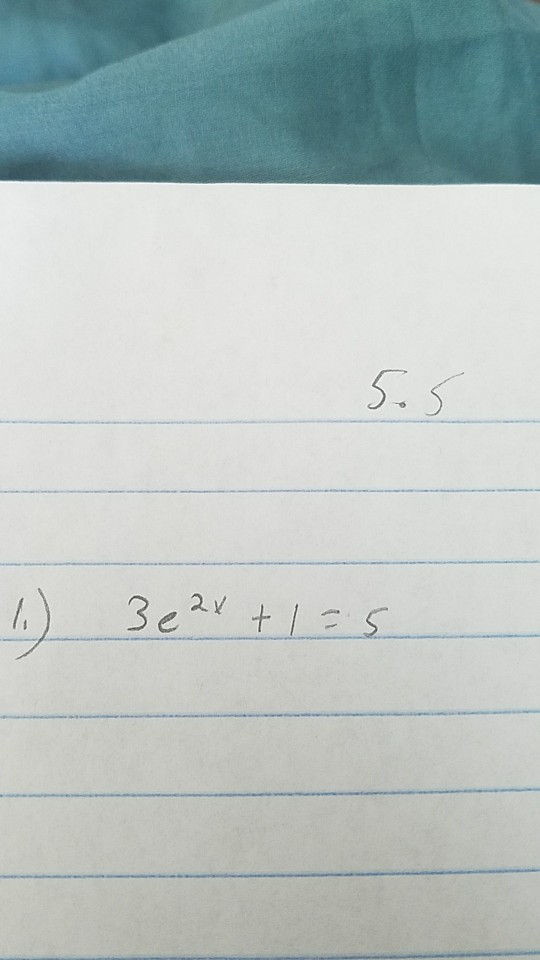 5.5
1.) 3e²ˣ + 1 = 5